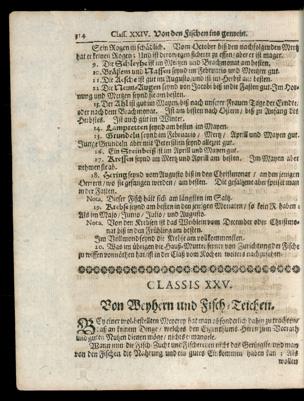 314 Class. XXIV. Von den Fischen ins gemein.
Sein Rogen ist schädlich. Vom October biß den nachfolgenden Mertz
hat er keinen Rogen; Und ist deswegen sicherer zu essen; aber er ist mager.
9. Die Schleyhe ist im Meyen und Brachmonat am besten.
10. und seynd im Februario und Mertzen gut.
11. Die Aesche ist gut im Augusto und im Herbst am besten.
12. Die Neun-Augen seynd von Jacobi biß in die Fasten gut. Im Hor-
nung und Mertzen seynd sie am besten.
13. Der Ahl ist gut im Mayen, biß nach unserer Frauen Tage der Ernde,
oder nach dem Brachmonat. Ist am besten nach Ostern, biß zu Anfang des
Herbstes. Ist auch gut im Winter.
14. Lampreten seynd am besten im Mayen.
15. Grundeln seynd am Februario / Mertz / April und Mayen gut.
Junge Grundeln aber mit Petersilien seynd allezeit gut.
16. Ein ist im April und Mayen gut.
17. Kressen seynd im Mertz und April am besten. Im Mayen aber
nehmen sie ab.
18. Hering seynd vom Augusto biß in den Christmonat / an den jenigen
Oerten / wo sie gefangen werden / am besten. Die gesaltzene aber speiset man
in der Fasten.
Nota. Dieser Fisch hält sich am längsten im Saltz.
19. Krebse seynd am besten in den jenigen Monaten / so kein R haben;
Als im Majo / Junio / Julio / und Augusto.
Nota. Von den Krebsen ist das Weiblein vom December oder Christmo-
nat biß in den Frühling am besten.
Im Vollmond seynd die Krebse am vollkommensten.
20. Was im übrigen die Hauß-Mutter ferner von Zurichtung der Fische
zu wissen vonnöthen hat, ist in der Claß vom Kochen weiters nachzusehen.
CLASSIS XXV.
Von Weyhern und Fisch-Teichen.
BEy einer wol-bestellten Meyerey hat man absonderlich dahin zu trachten,
daß an keinem Dinge / welches dem Eigenthums-Herrn zum Vorrath
und gutem Nutzen dienen möge / nichtes ermangele.
Wann nun die Fisch-Zucht zum Fischereyen nicht das Geringste / und man
von den Fischen die Nahrung und ein gutes Einkommen haben kan; Als
wollen